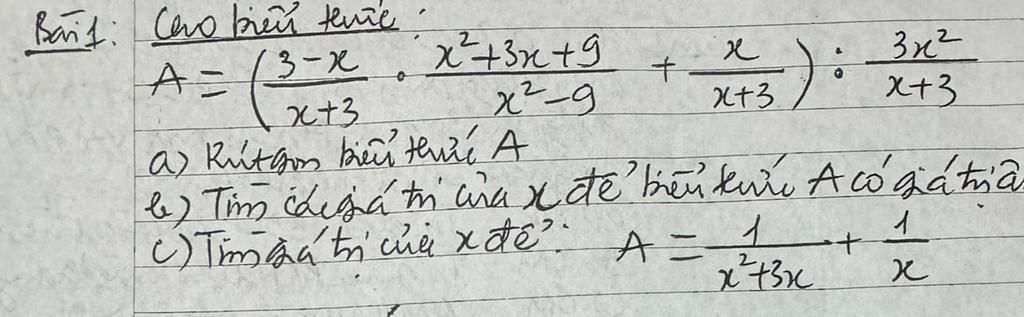 Bài 1: Cho biểu thức:
A = (3-x/x+3 · x²+3x+9/x²-9 + x/x+3) : 3x²/x+3
a) Rút gọn biểu thức A
b) Tìm các giá trị của x để biểu thức A có giá trị â
c) Tìm giá trị của x để: A = 1/x²+3x + 1/x